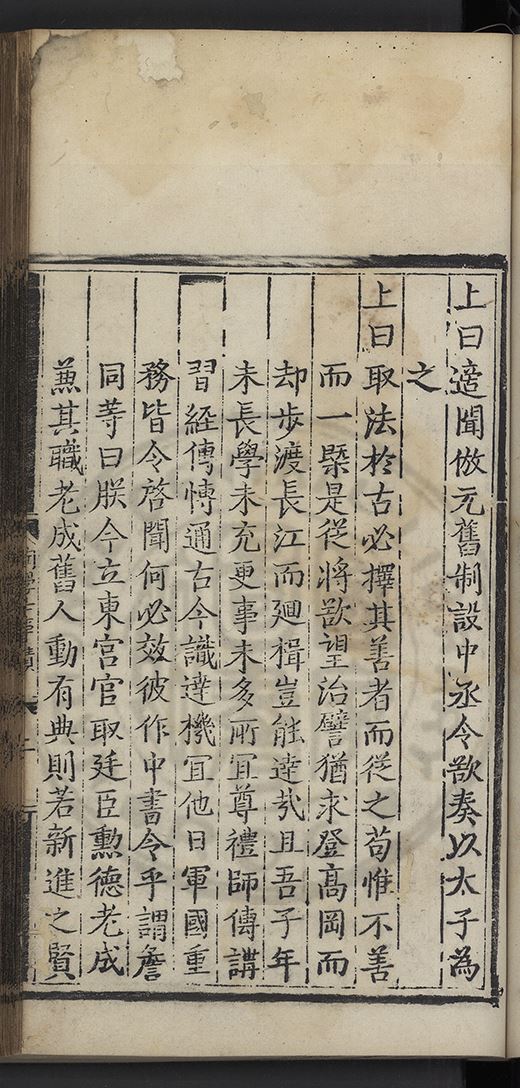 上曰适聞倣元舊制設中丞令欲奏以太子為
之
上曰取法於古必擇其善者而從之苟惟不善
而一槩是從將欲望治譬猶求登髙岡而
却歩渡長江而廻楫豈能逹㢤且吾子年
未長學未充更事未多所宜尊禮師傅講
習經傳愽通古今識逹機冝他日軍國重
務皆令啓聞何必效彼作中書令乎謂詹
同䓁曰朕今立東宫官取廷臣勲德老成
蒹其職老成舊人動有典則若新進之賢